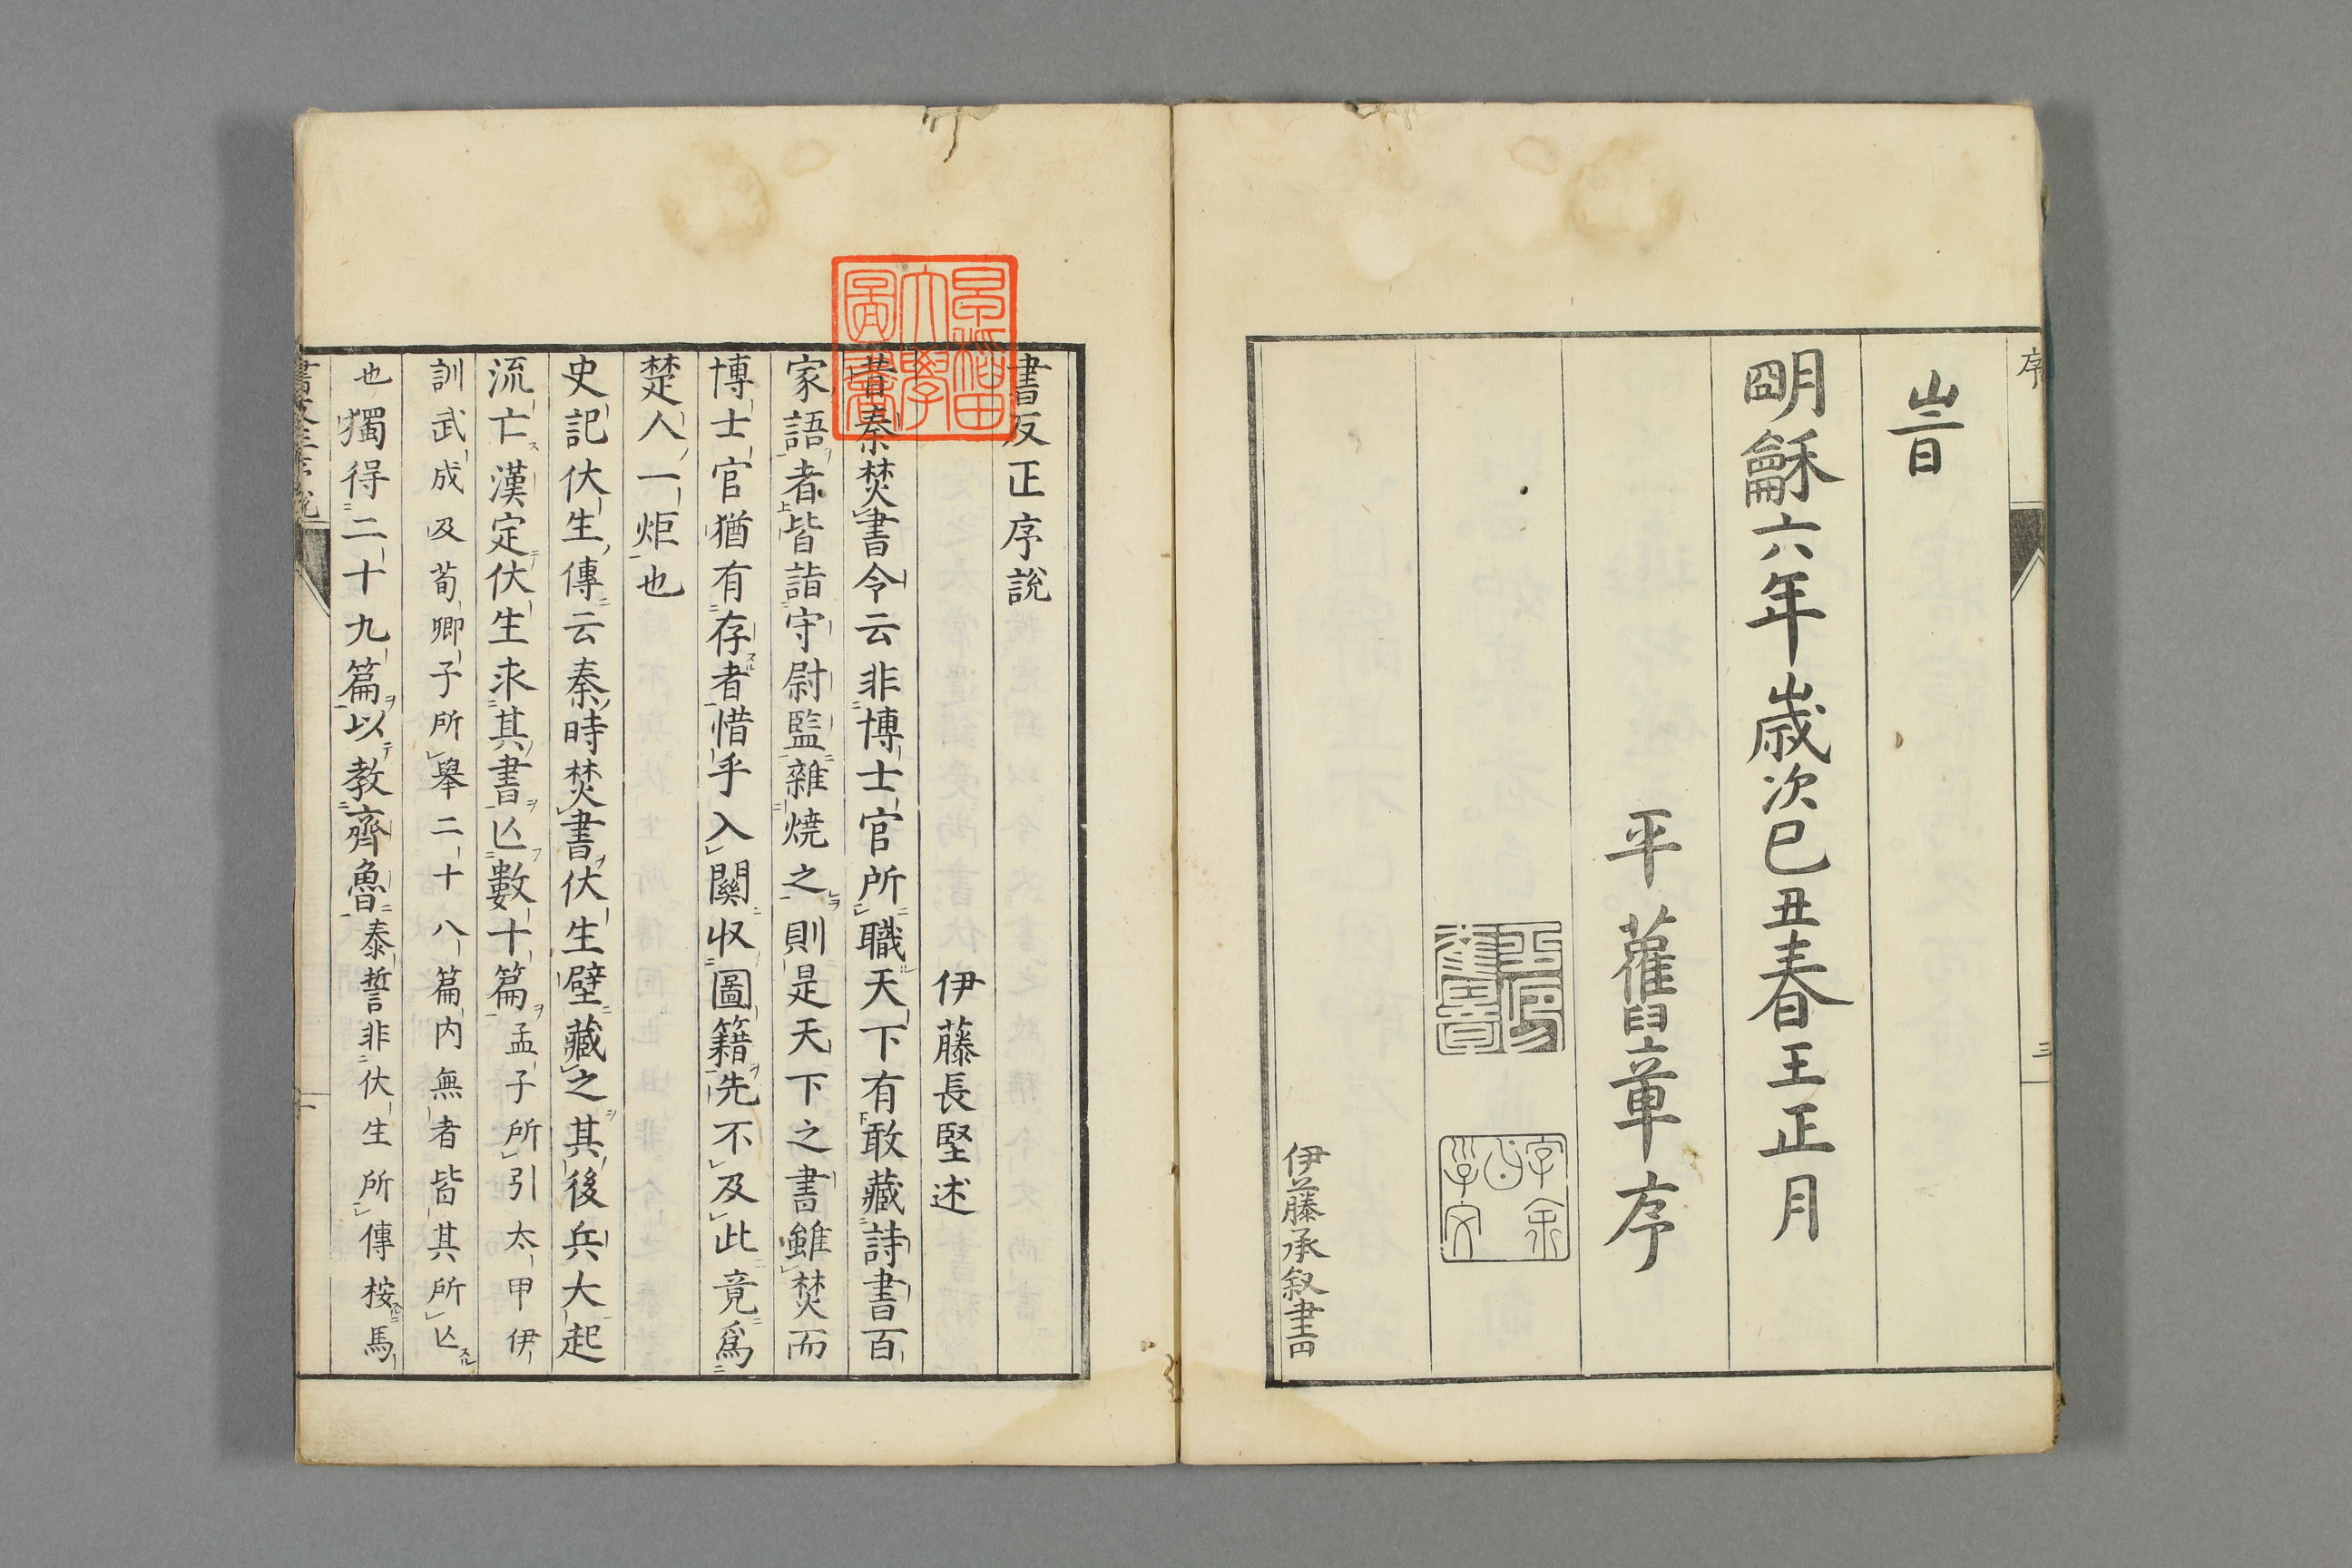 序
三
旹
明龢六年歲次己丑春王正月
平 藋𦥑章序
伊藤承叙書
書反正序說
伊藤長堅述
昔秦焚書令云非博士官所職天下有敢藏詩書百
家語者皆詣守尉監雜燒之則是天下之書雖焚而
博士官猶有存者惜乎入關收圖籍先不及此竟爲
楚人一炬也
史記伏生傳云秦時焚書伏生壁藏之其後兵大起
流亡漢定伏生求其書亾數十篇孟子所引太甲伊
訓武成及荀卿子所舉二十八篇内無者皆其所亾
也獨得二十九篇以教齊魯泰誓非伏生所傳按馬
早稲田大學圖書